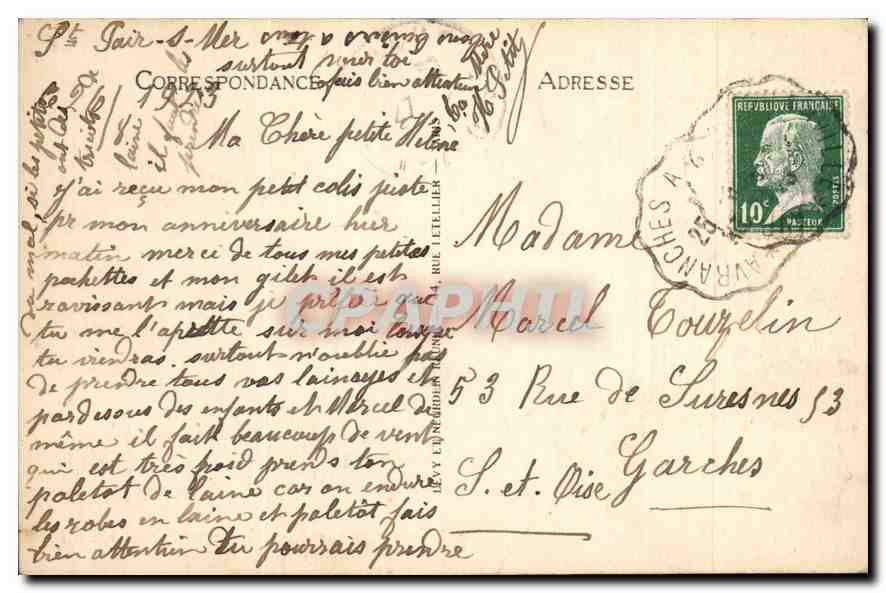 St Pair-s-Mer
CORRESPONDANCE
ADRESSE
Ma Chère petite Hélène
j'ai reçu mon petit colis juste
pr mon anniversaire hier
matin merci de tous mes petites
pochettes et mon gilet il est
ravissant mais je préfère que
tu me l'apporte sur moi lorsque
tu viendras surtout n'oublie pas
de prendre tous vos lainages et
pardessous des enfants et Marcel de
même il fait beaucoup de vent
qui est très froid prends ton
paletot de laine car on endure
les robes en laine et paletot fais
bien attention tu pourrais prendre
du mal, si les petites
ont des
tricots de
laine il faut les
prendre
bons baisers à tous
surtout pour toi
fais bien attention
ta Mère
H Petit
LEVY ET NEURDEIN REUNIS, 44, RUE LETELLIER
Madame
Marcel Touzelin
53 Rue de Suresnes 53
Garches
S. et. Oise
REPUBLIQUE FRANÇAISE
10c
PASTEUR
POSTES
AVRANCHES A
25
CPAPHIL